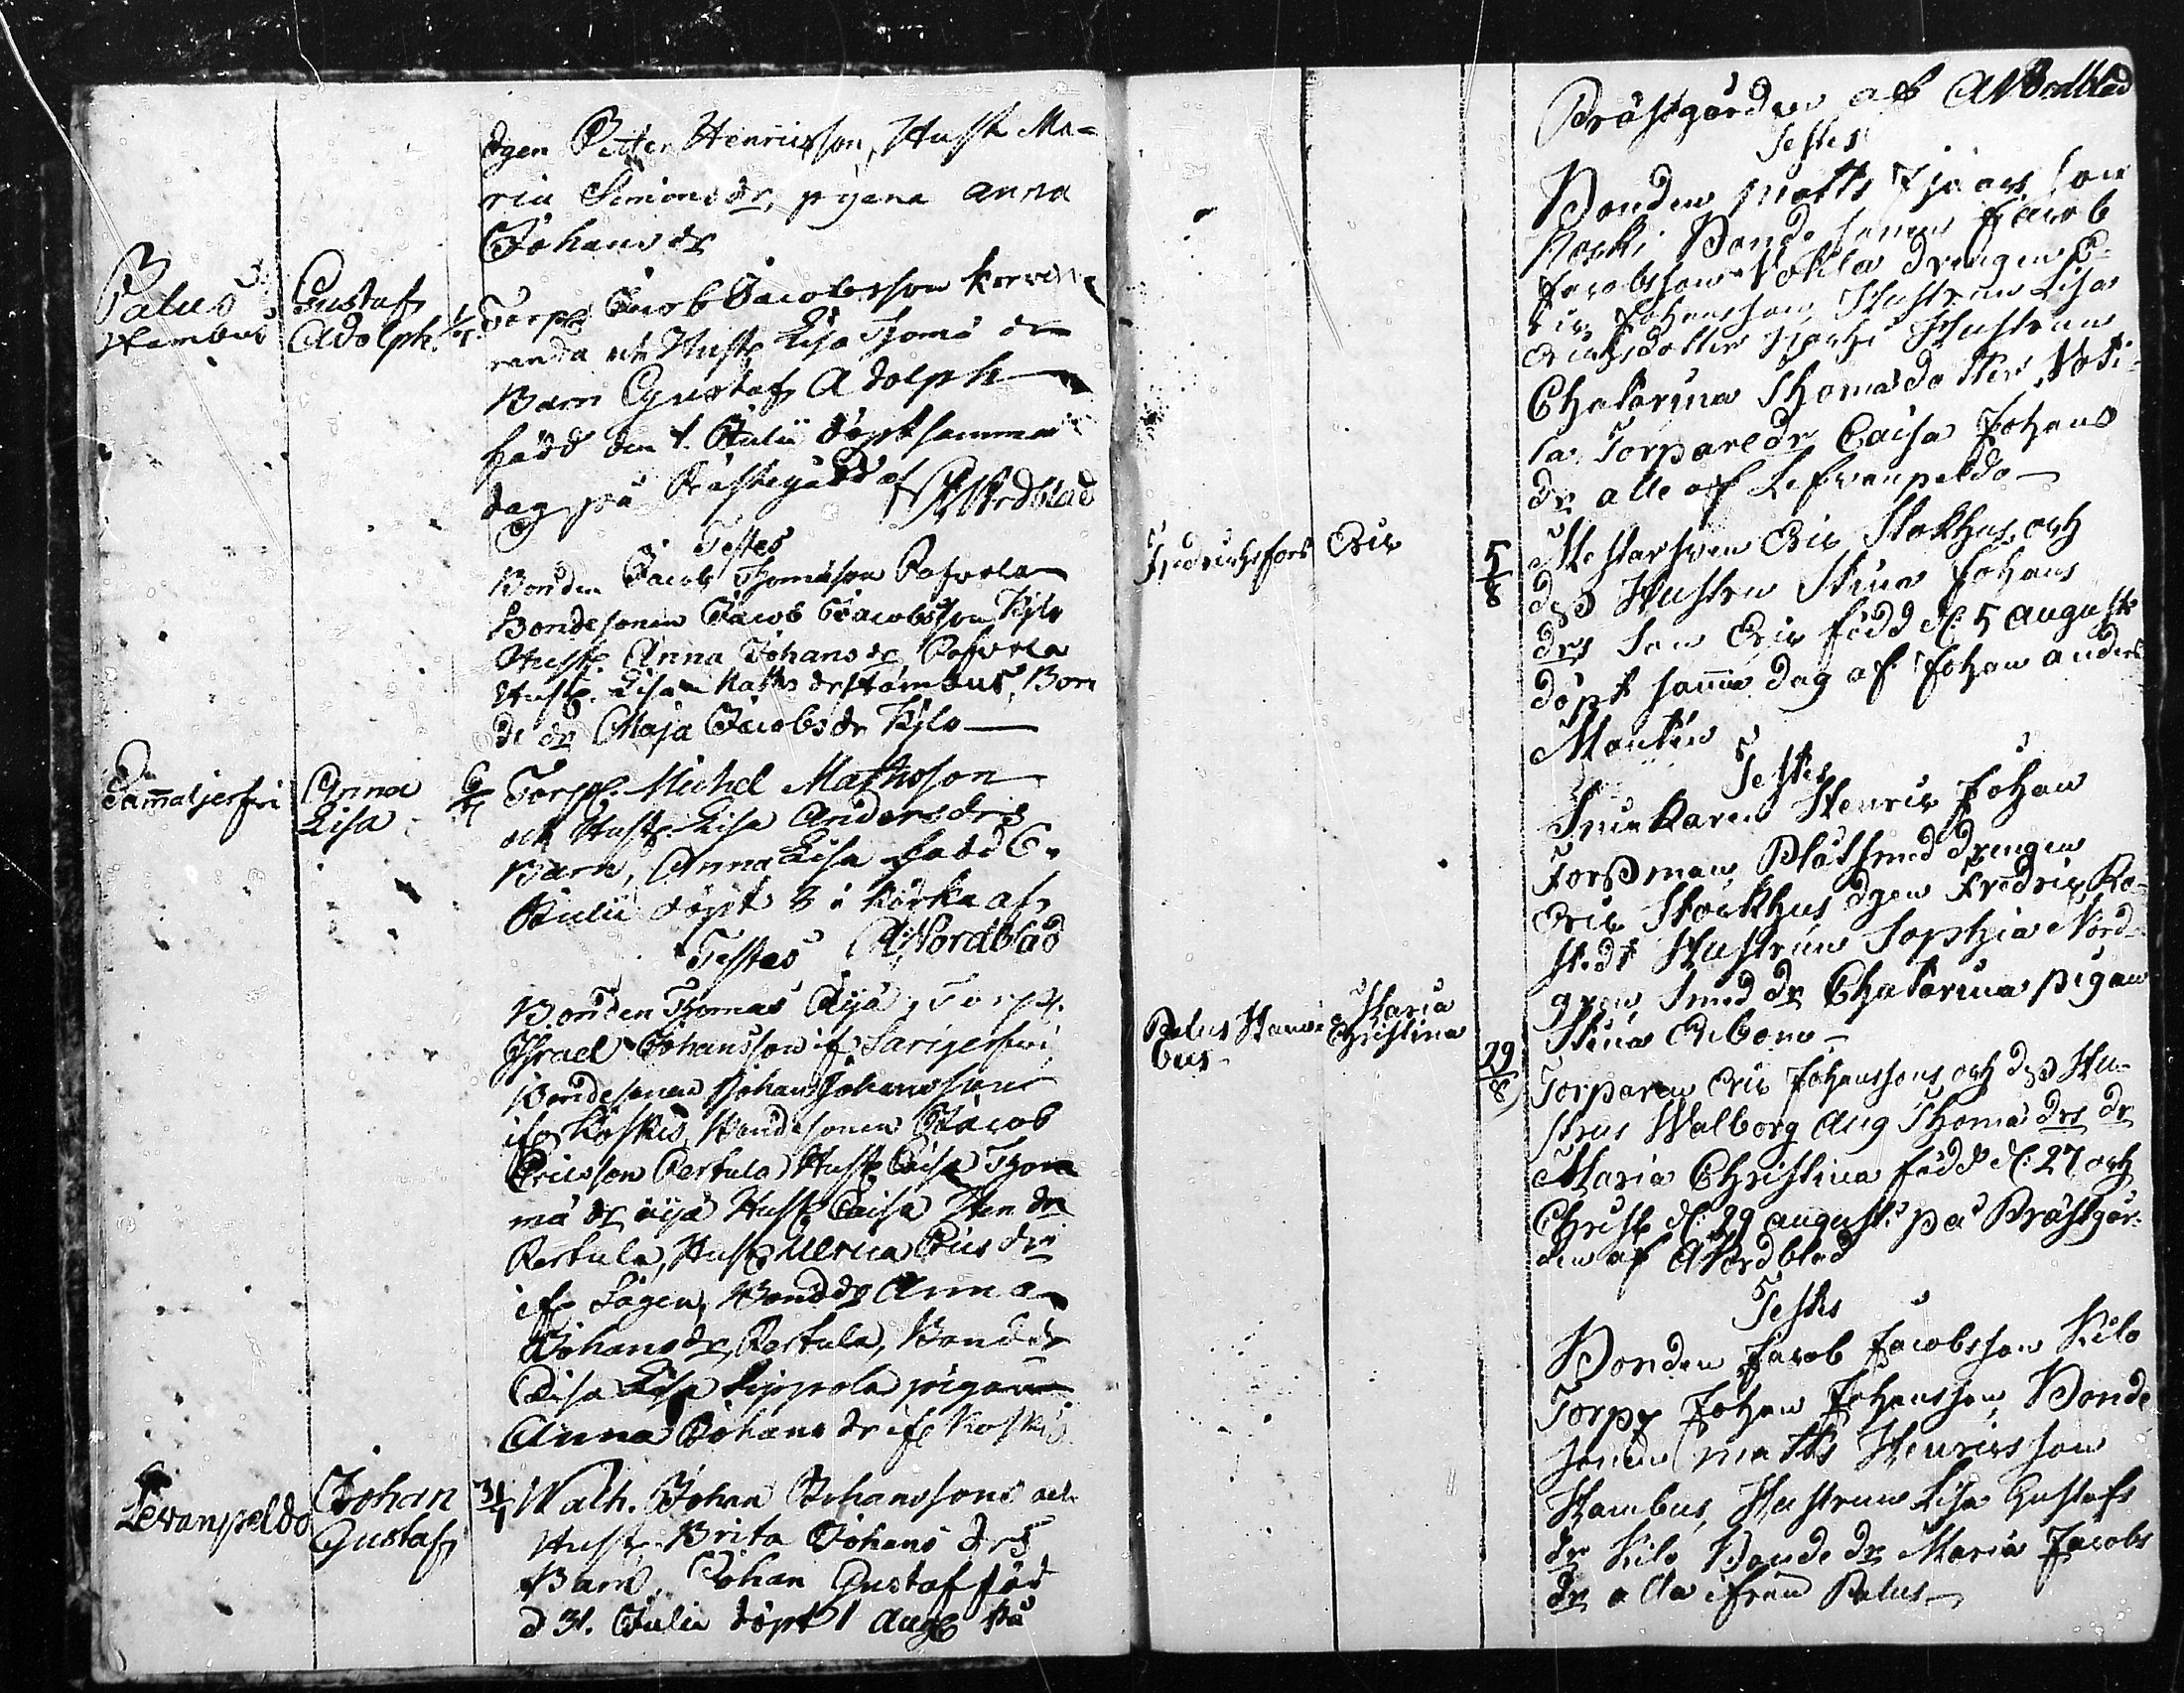 dgen Petter Henricsson, Hust Ma=
ria Simonsdr, pigene anna
Johansdr
Palus
Stambus
Gustaf
Adolph
1/7
Torp. Jacob Jacobsson korven
randa och Hust. Lisa Thomæ drs
Barn Gustaf Adolph
född den 1. Julii döpt samma
dag på Prästegård af
A Nordblad
Testes
Bonden Jacob Thomasson Pafvola
Bondesonen Jacob Jacobsson Kylo
Hust. Anna Johansdr Pafvola
Hust. Lisa Matts dr Stambus, Bon
de dr Maja Jacobsdr Kylo
Samaljerfvi
Anna
Lisa
6/7
Torp. Michel Mathsson
och Hust. Lisa Andersdrs
Barn, Anna Lisa född 6.
Julii döpt 8 i Körka af
A Nordblad
Testes
Bonden Thomas Äijä, Torp.
Israel Johansson if. Sarijerfvi
Bondesonen Johan Johansson
if. Koskis, Bondesonen Jacob
Ericsson Pertula Hust. Caisa Thom
mä dr äijä Hust Caisa Hen dr
Pertula, Hust. Ulrica Ericsdr
if. Sagen, Bonddr Anna
Johansdr, Pertula, Bonddr
Lisa Seppola pigan
Anna Johans dr if. Koskis
Levanpeldo
Johan
Gustaf
31/7
Walh. Johan Johanssons och
Hust. Brita Johans drs
Barn, Johan Gustaf föd
d 31. Julii döpt 1 Aug. på
Prästgården af A Nordblad
Testes
Bonden Matts Isacsson
Koski Bondesonen Jacob
Jacobsson Nokila drengen E=
ric Johansson, Hustrun Lisa
Ericksdotter Koski Hustrun
Chatarina Thomasdotter Noki=
la Torparedr Caisa Johans
dr alle af Lefvanpeldo
Fredrichsfors
Eric
5/8
Mästarsven Eric Stokhus och
dess Hustru Stina Johans
drs Son Eric född d: 5 Augusti
döpt samma dag af Johan anders
Montin
Testes
Snickaren Henric Johan
Forssman, Plåtsmed drengen
Eric Stockhus dgen Fredric Ro=
stedt Hustrun Sophia Nord=
gren, Smed dr Chatarina pigan
Stina
Palus Stam=
bus
Maria
Christina
29/8
Torparen Eric Johanssons och dess Hu=
strus Walborg Aug Thoma drs dr
Maria Christina född d: 27 och
Christ. d: 29 august: på Prästgår=
den af A Nordblad
Testes
Bonden Jacob Jacobsson Kilo
Torp. Johan Johansson, Bonde
sonen Matts Henricsson
Stambus, Hustrun Lisa Gustafs
dr Kilo Bonde dr Maria Jacobs
dr alla ifrån Palus